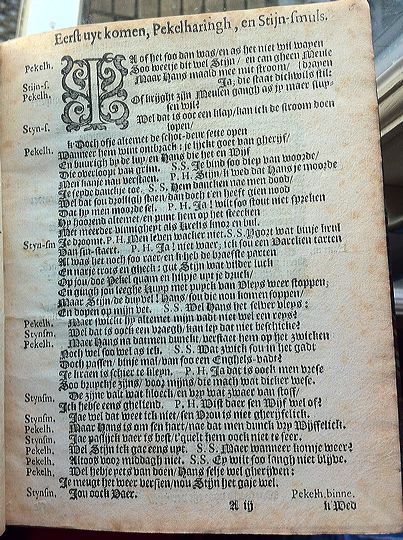 Eerst uyt komen, Pekelharingh, en Stijn-smuls.
Pekelh. JA of het soo dan was/en as het niet wil wayen
Soo weetje dit wel Stijn/ en can gheen Meule
Maar Hans maald mee mit stroom/ [drayen
Stijn-s. Ja; die staat dickwils stil:
Pekelh. Of krijght zijn Meulen gangh as jy maer sluy-
sen wil?
Styn-s. Wel dat is oce een klap/kan ick de stroom doen
lopen/
Pekelh. k Doch ofje altemet de schot-deur sette open
Wanneer hem wint ontbrack: je lyckt goet van gherijf/
En buurighly by de luy/en Hans die het en Wijf
Die overloopt van grim. S.S. Je bind soo diep van woorde/
Men kanje nau verstaen. P. H. Stijn/k wed dat Hans je moorde
Je sepde danckje toe. S.S. Hem dancken nae men dood/
Wel dat sou drolligh staen/dan doch t'en heeft gien nood
Dat hy men moorde sel. P. H. Ja! wilt soo stout niet spreken
Hy hoorend altemet/en punt hem op het steecken
Met meerder vinnigheyt als Krelis knor en bul.
Styn-sm Je droomt. P. H. Men leven wacker niet. S.S. Hoort wat binje krul
Van sin-staert. P. H. Ja! niet waer; ick sou een Varcken tarten
Al was het noch soo raer/en k heb de braefste parten
En narje trots en gheck: gut Stijn wat wilder luck
Op jou/doe Pekel quam en hilpje uyt je druck/
En gingh jou leeghe Kuyp met puyck van Vleys weer stoppen;
Maar Stijn/de duyvel! Hans/sou die nou komen soppen/
En dopen op mijn vet. S.S. Wel Hans het selver vleys:
Pekelh. Maer/wilckt hy altemet mijn vadt niet wel een reys?
Stynsm. Wil dat is doch een vraegh/kan ley dat niet beschicke?
Pekelh. Maer Hans na dammen dunckt/verstaet hem op het zwicken
Noch wel soo wel as ick. S.S. Wat zwick sou in het gadt
Doch passen/ binje mal/van soo een Enghels-vadt?
Pekelh. Je kraen is schier te kleyn. P. H. Ja dat is oock men vrese
Soo bruyckje zijns/voor mijns/die mach wat dicker wese.
Stynsm. De zijne valt wat kloeck/en vry wat zwaer van stof/
Ick hebse eens ghesiend. P. H. Wist daer sen Wijf wel of?
Stynsm. Jae wel dat weet ick niet/sen Vrou is niet gherijfelick.
Pekelh. Maar Hans is om sen hart/nae dat men dunck vry Wijffelick.
Stynsm. Jae pasjick waer is best/t'quelt hem oock niet te seer.
Pekelh. Wel Stijn ick gae eens upt. S.S. Maer wanneer komje weer?
Pekelh. Altoos voor middagh niet. S.S. Ey wilt soo langh niet blijve.
Pekelh. Wel hebje yets van doen/Hans selje wel gherijven:
Je meught het weer versien/nou Stijn het gaje wel.
Stynsm. Jou oock Vaer. Pekelh. binne.
A iij k Wed